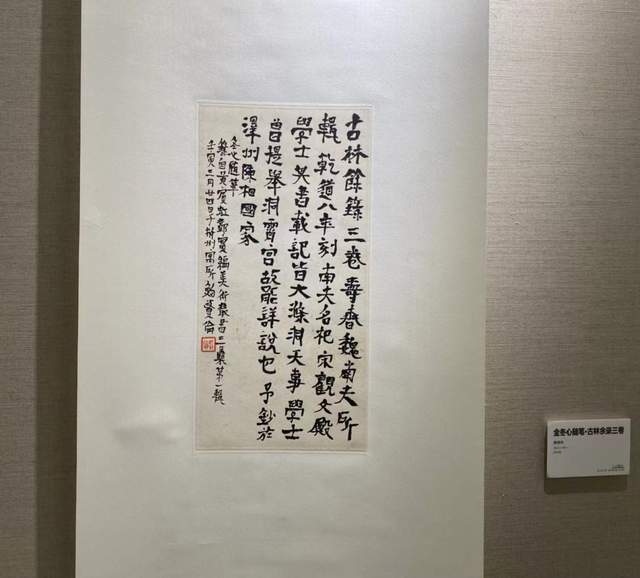 古林餘錄三卷壽春魏南夫所
輯乾道八年刻南夫名杞宋觀文殿
學士其書載記皆大滌洞天事學士
曾提舉洞霄宮故能詳說也予鈔於
澤州陳相國家
冬心隨筆
錄自黃賓虹鄧實編美術叢書二集第一輯
壬寅三月廿四日于杭州寓所
金冬心随笔·古林余录三卷